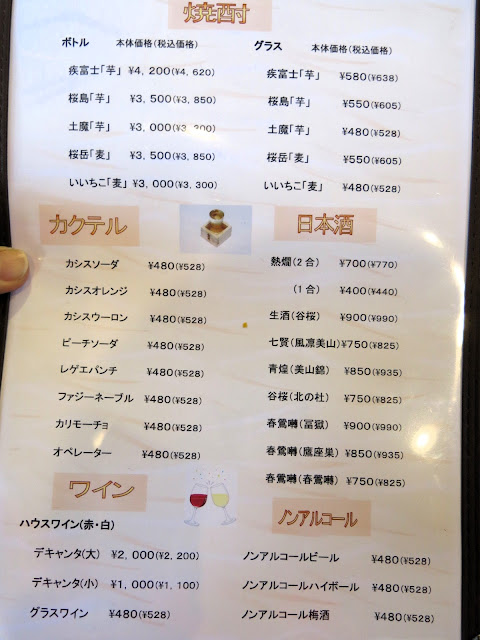 焼酎
ボトル 本体価格(税込価格)
疾富士「芋」 ¥4,200(¥4,620)
桜島「芋」 ¥3,500(¥3,850)
土魔「芋」 ¥3,000(¥3,300)
桜岳「麦」 ¥3,500(¥3,850)
いいちこ「麦」 ¥3,000(¥3,300)
グラス 本体価格(税込価格)
疾富士「芋」 ¥580(¥638)
桜島「芋」 ¥550(¥605)
土魔「芋」 ¥480(¥528)
桜岳「麦」 ¥550(¥605)
いいちこ「麦」 ¥480(¥528)
カクテル
カシスソーダ ¥480(¥528)
カシスオレンジ ¥480(¥528)
カシスウーロン ¥480(¥528)
ピーチソーダ ¥480(¥528)
レゲエパンチ ¥480(¥528)
ファジーネーブル ¥480(¥528)
カリモーチョ ¥480(¥528)
オペレーター ¥480(¥528)
日本酒
熱燗(2合) ¥700(¥770)
(1合) ¥400(¥440)
生酒(谷桜) ¥900(¥990)
七賢(風凛美山) ¥750(¥825)
青煌(美山錦) ¥850(¥935)
谷桜(北の杜) ¥750(¥825)
春鶯囀(冨嶽) ¥900(¥990)
春鶯囀(鷹座巣) ¥850(¥935)
春鶯囀(春鶯囀) ¥750(¥825)
ワイン
ハウスワイン(赤・白)
デキャンタ(大) ¥2,000(¥2,200)
デキャンタ(小) ¥1,000(¥1,100)
グラスワイン ¥480(¥528)
ノンアルコール
ノンアルコールビール ¥480(¥528)
ノンアルコールハイボール ¥480(¥528)
ノンアルコール梅酒 ¥480(¥528)